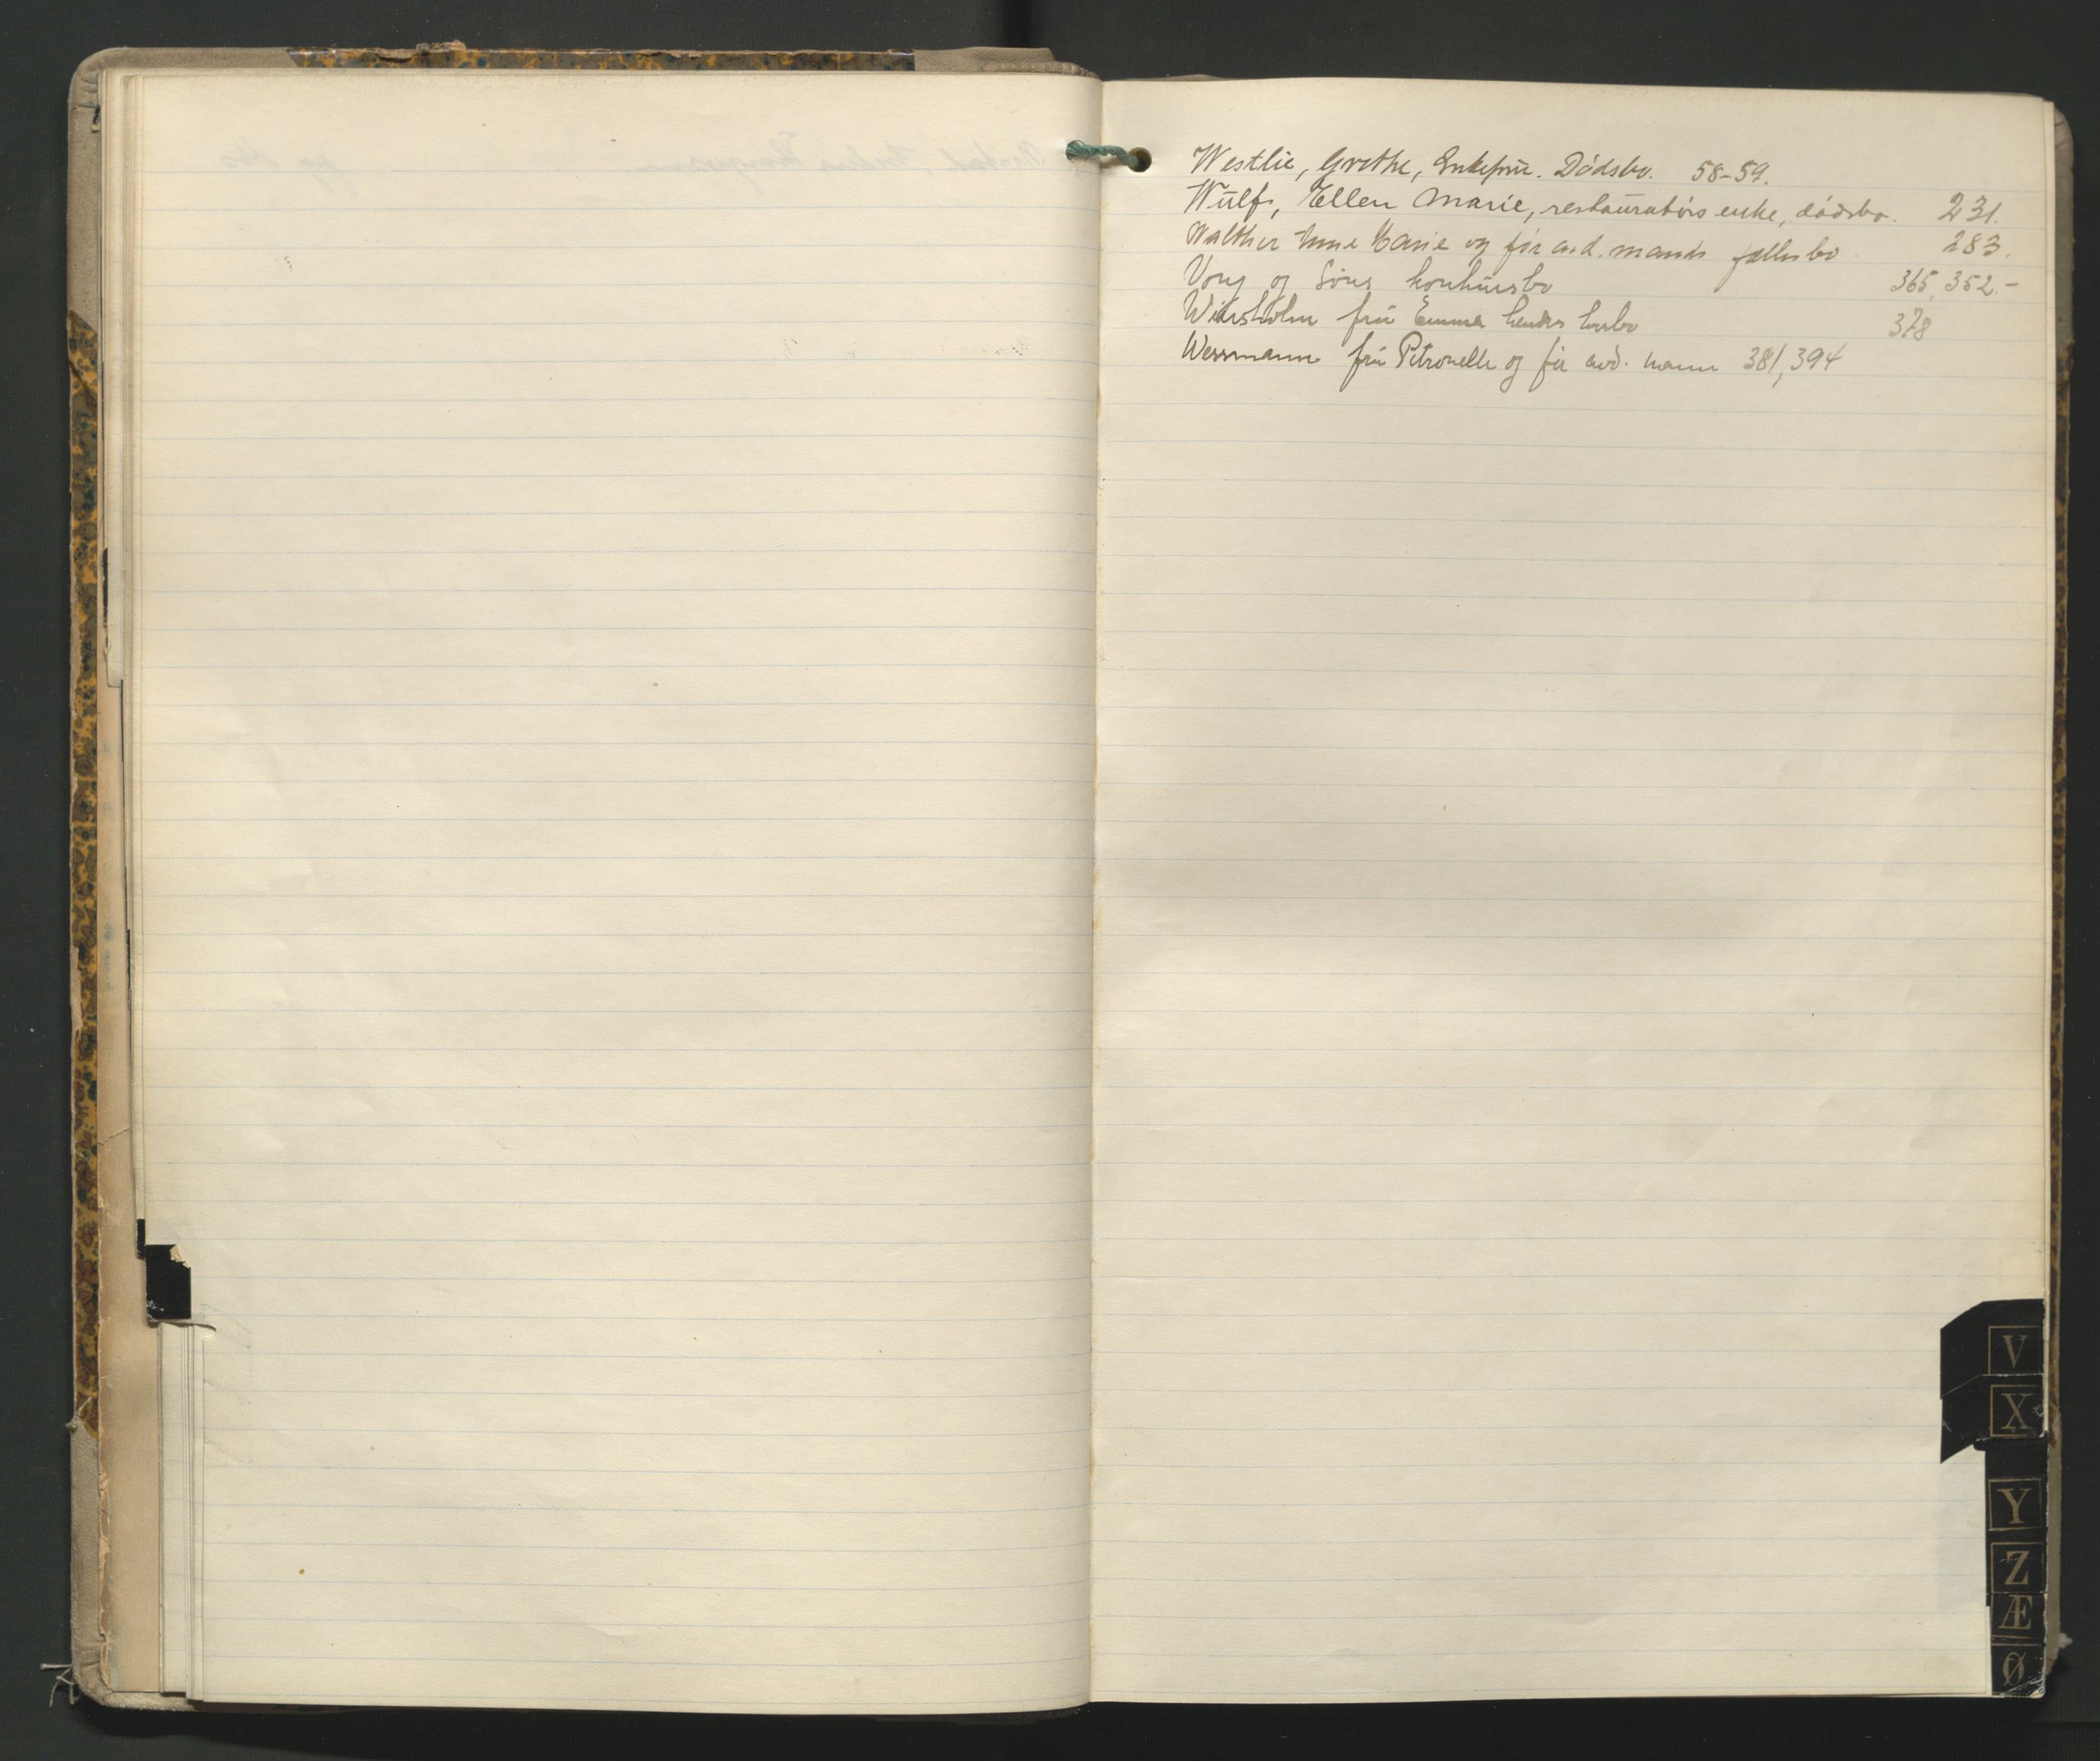 Westlie, Grethe, Enkefrue. Dødsbo. 58-59.
Wulf, Ellen Marie, restauratørs enke, dødsbo. 231.
Walther Anne Marie og før avd. mands fællesbo 283.
Vong og Søns konkursbo 365, 352.-
fru Emma hendes 378
Wessmann fru Petronelle og før avd. mann 381, 394
V
X
Y
Z
Æ
Ø